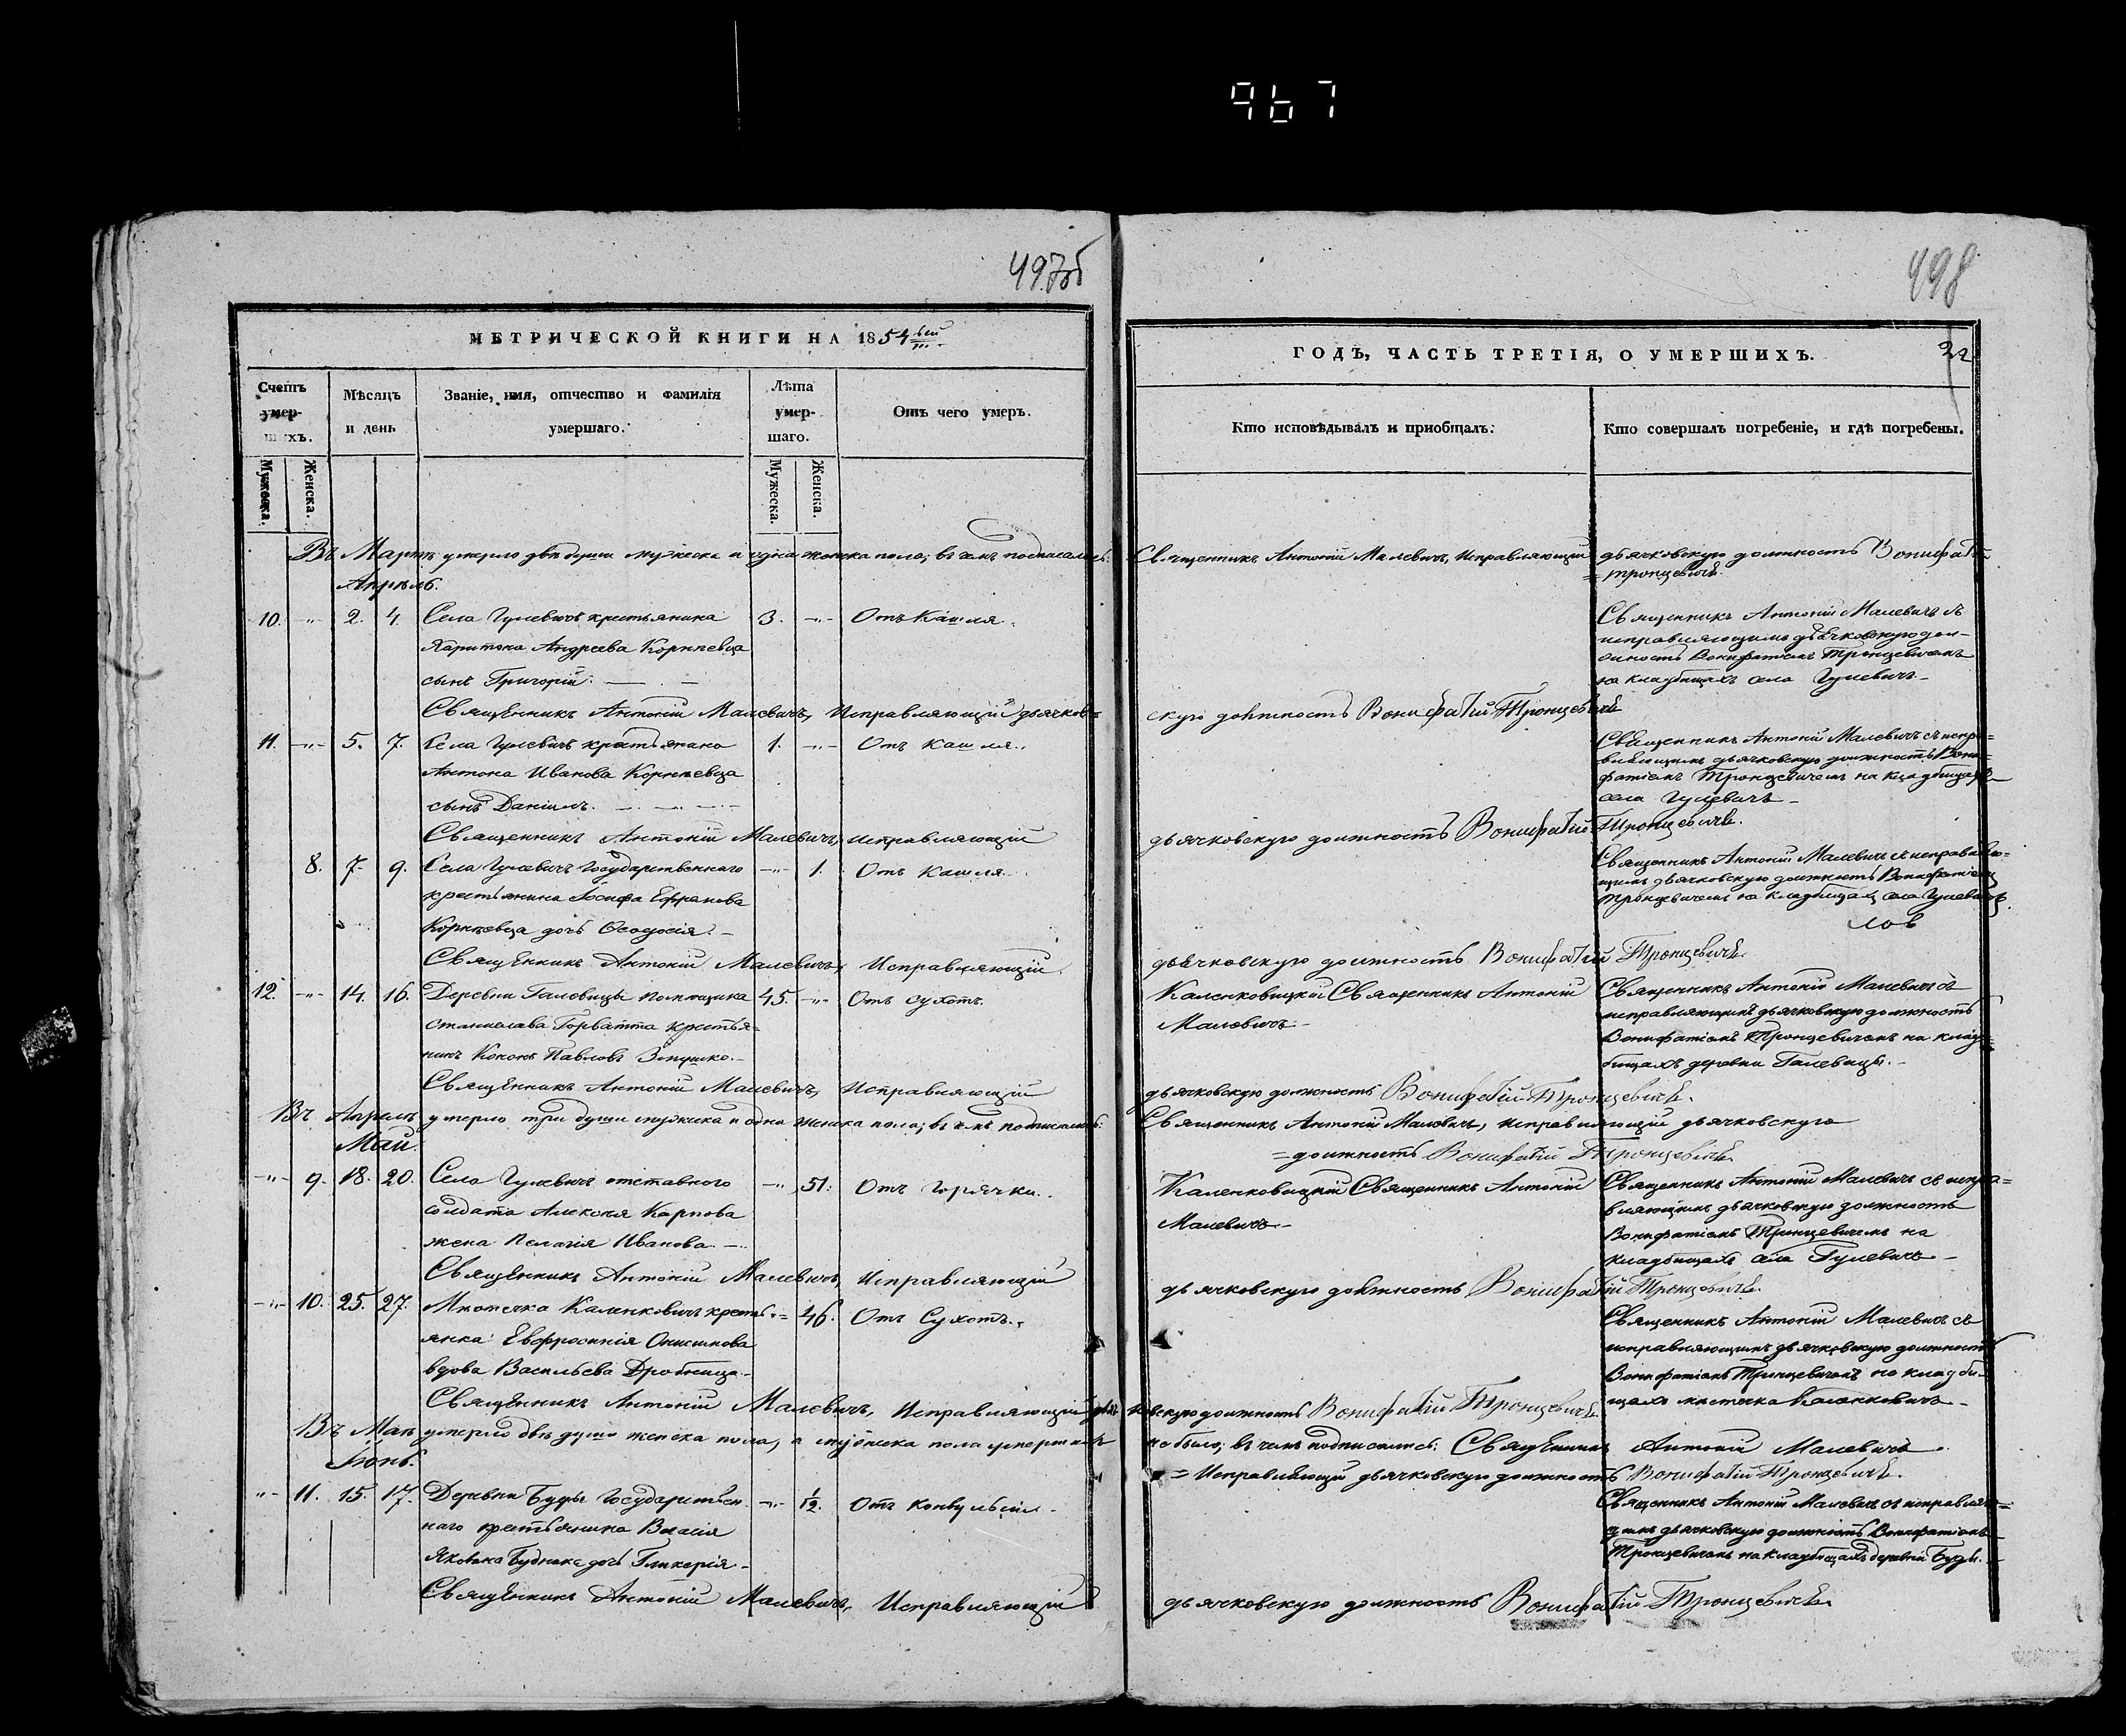 967
497об
498
МЕТРИЧЕСКОЙ КНИГИ НА 1854ый
Счетъ умер-шихъ.
Мѣсяцъ и день
Званіе, имя, отчество и фамилія умершаго.
Лѣта умер-шаго.
Отъ чего умеръ.
Мужеска.
Женска.
Мужеска.
Женска.
ГОДЪ, ЧАСТЬ ТРЕТІЯ, О УМЕРШИХЪ.
22
Кто исповѣдывалъ и приобщалъ.
Кто совершалъ погребеніе, и гдѣ погребены.
Въ Мартѣ умерло двѣ души мужеска и одна женска пола; въ чемъ подписались: Священникъ Антоній Малевичъ, Исправляющій дьячковскую должность Вонифатій
= Тронцевичъ.
Апрѣль.
10. -"- 2. 4. Села Гулевичъ крестьянина 3. -"- Отъ Кашля.
Харитона Андреева Корнѣевца
сынъ Григорій.
Священникъ Антоній Малевичъ съ
исправляющимъ дьячковскую дол-
жность Вонифатіемъ Тронцевичемъ
на кладбищахъ села Гулевичъ
Священникъ Антоній Малевичъ, Исправляющій дьячков=
скую должность Вонифатій Тронцевичъ
11. -"- 5. 7. Села Гулевичъ крестьянина 1. -"- Отъ кашля.
Антона Иванова Корнѣевца
сынъ Даніилъ.
Священникъ Антоній Малевичъ съ испра=
вляющимъ дьячковскую должность Вони=
фатіемъ Тронцевичемъ на кладбищахъ
села Гулевичъ
Священникъ Антоній Малевичъ, исправляющій
дьячковскую должность Вонифатій Тронцевичъ.
8. 7. 9. Села Гулевичъ Государственнаго -"- 1. Отъ кашля.
крестьянина Іосифа Ефремова
Корнѣевца дочь Ѳеодосія.
Священникъ Антоній Малевичъ съ исправляю=
щимъ дьячковскую должность Вонифатіемъ
Тронцевичемъ на кладбищахъ села Гулевичъ.
Священникъ Антоній Малевичъ, Исправляющій
дьячковскую должность Вонифатій Тронцевичъ.
12. -"- 14. 16. Деревни Галевицы помѣщика 45. -"- Отъ сухотъ.
Станислава Горватта крестья=
нинъ Кононъ Павловъ
Каленковицкій Священникъ Антоній
Малевичъ
Священникъ Антоній Малевичъ съ
исправляющимъ дьячковскую должность
Вонифатіемъ Тронцевичемъ на клад=
бищахъ деревни Галевицы.
Священникъ Антоній Малевичъ, Исправляющій
дьячковскую должность Вонифатій Тронцевичъ.
Въ Апрѣлѣ умерло три души мужеска и одна женска пола; въ чемъ подписались: Священникъ Антоній Малевичъ, исправляющій дьячковскую
= должность Вонифатій Тронцевичъ.
Май.
-"- 9. 18. 20. Села Гулевичъ отставного -"- 51. Отъ горячки.
солдата Алексѣя Карпова
жена Пелагія Иванова.
Каленковицкій Священникъ Антоній
Малевичъ
Священникъ Антоній Малевичъ съ испра=
вляющимъ дьячковскую должность
Вонифатіемъ Тронцевичемъ на
кладбищахъ села Гулевичъ
Священникъ Антоній Малевичъ, Исправляющій
дьячковскую должность Вонифатій Тронцевичъ.
-"- 10. 25. 27. Мѣстечка Каленковичъ кресть= 46. Отъ Сухотъ.
янка Евфросинія Онисимова
вдова Васильева Дробница
Священникъ Антоній Малевичъ съ
исправляющимъ дьячковскую должность
Вонифатіемъ Тронцевичемъ на кладби-
щахъ мѣстечка Каленковичъ
Священникъ Антоній Малевичъ, Исправляющій дьяч
ковскую должность Вонифатій Тронцевичъ.
Въ Маѣ умерло двѣ души женска пола, а мужеска пола умершихъ не было; въ чемъ подписались: Священникъ Антоній Малевичъ.
= Исправляющій дьячковскую должность Вонифатій Тронцевичъ.
Іюнь.
-"- 11. 15. 17. Деревни Буды Государствен -"- 1/12. Отъ конвульсіи.
наго крестьянина Власія
Яковлева Будника дочь Гликерія
Священникъ Антоній Малевичъ съ исправляю=
щимъ дьячковскую должность Вонифатіемъ
Тронцевичемъ на кладбищахъ деревни Буды.
Священникъ Антоній Малевичъ, Исправляющій
дьячковскую должность Вонифатій Тронцевичъ.